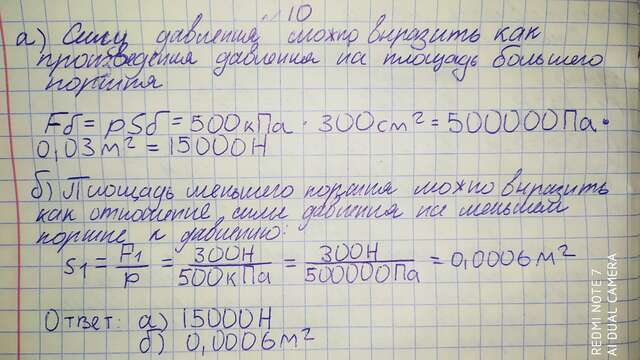 10
а) Силу давления можно выразить как
произведения давления на площадь большего
поршня
Fб = pSб = 500кПа · 300см² = 500000Па ·
0,03м² = 15000Н
б) Площадь меньшего поршня можно выразить
как отношение силы давления на меньшем
поршне к давлению:
S₁ = F₁/p = 300Н/500кПа = 300Н/500000Па = 0,0006м²
Ответ: а) 15000Н
б) 0,0006м²
REDMI NOTE 7
AI DUAL CAMERA